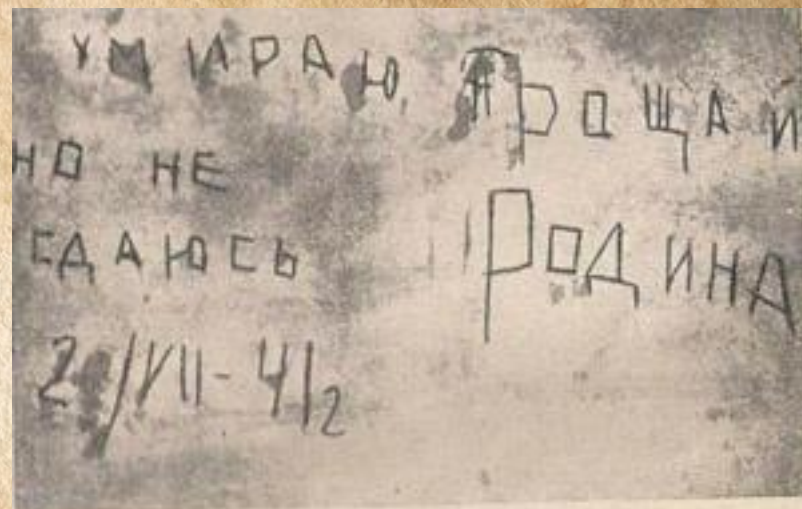 УМИРАЮ,
НО НЕ
СДАЮСЬ
ПРОЩАЙ
РОДИНА
/VII-41г